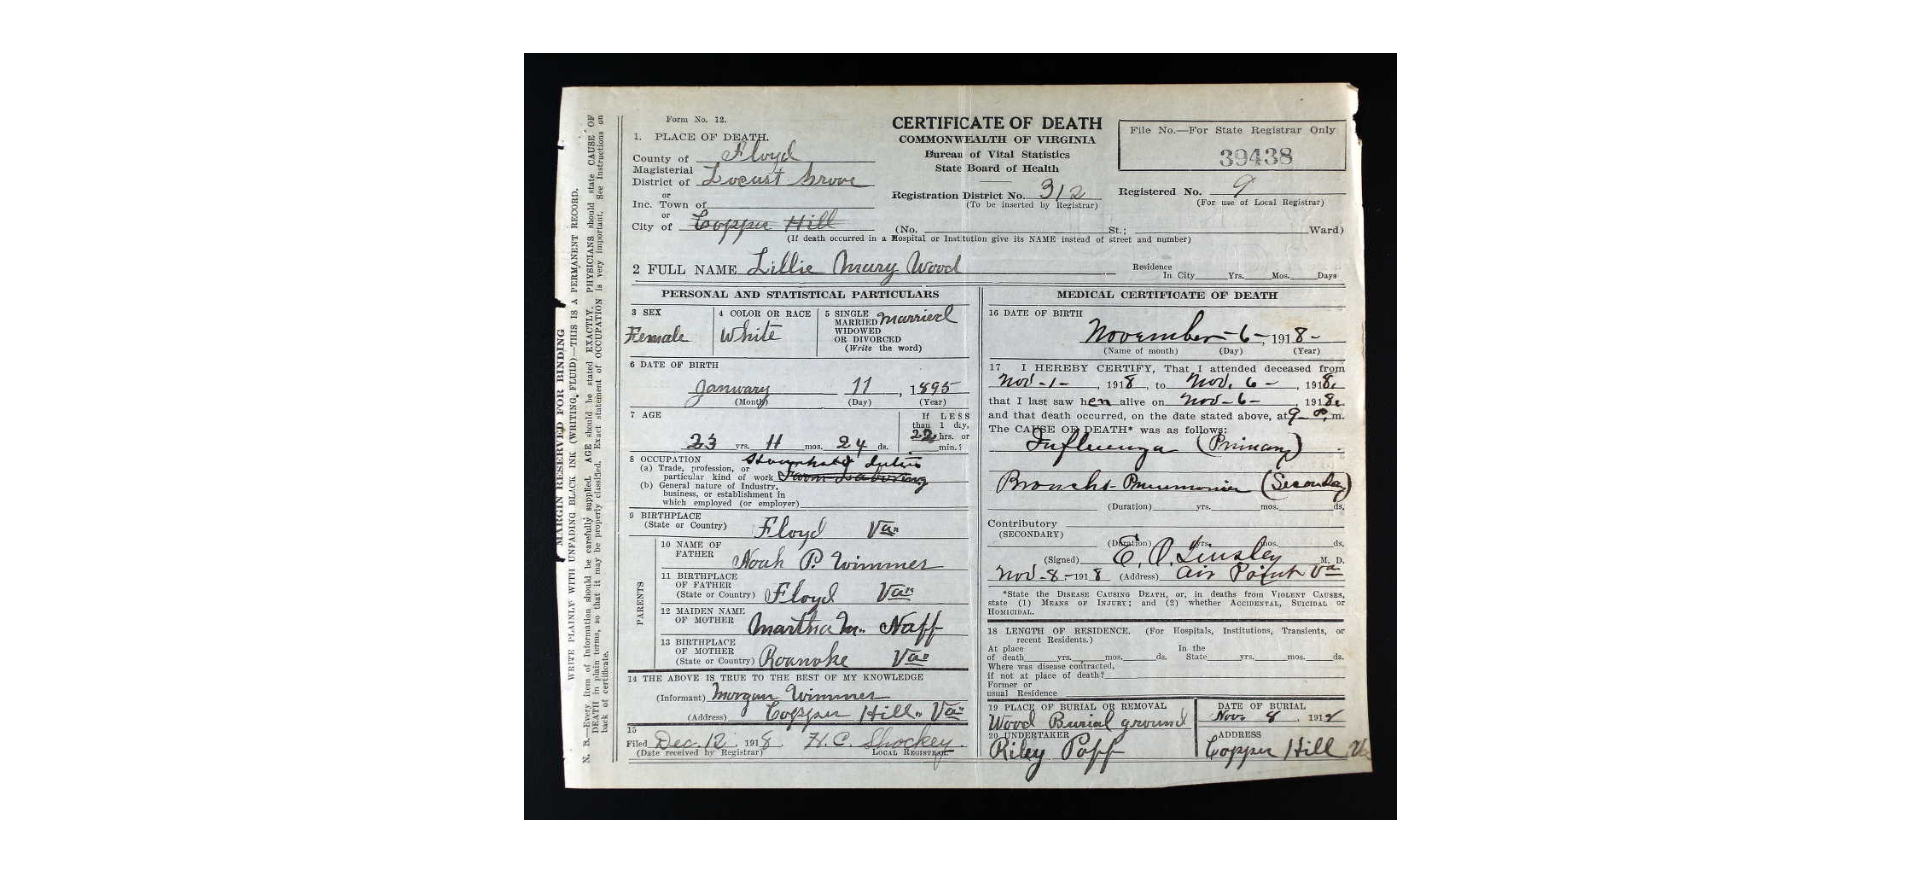 Form No. 12.
CERTIFICATE OF DEATH
COMMONWEALTH OF VIRGINIA
Bureau of Vital Statistics
State Board of Health
File No.—For State Registrar Only
39438
1. PLACE OF DEATH.
County of Floyd
Magisterial
District of Locust Grove
or
Inc. Town of
or
City of Copper Hill
Registration District No. 312
(To be inserted by Registrar)
Registered No. 9
(For use of Local Registrar)
(No. St.; Ward)
(If death occurred in a Hospital or Institution give its NAME instead of street and number)
2 FULL NAME Lillie Mary Wood
Residence
In City Yrs. Mos. Days
PERSONAL AND STATISTICAL PARTICULARS
3 SEX
Female
4 COLOR OR RACE
White
5 SINGLE
MARRIED Married
WIDOWED
OR DIVORCED
(Write the word)
6 DATE OF BIRTH
January 11, 1895
(Month) (Day) (Year)
7 AGE
23 yrs. 11 mos. 24 ds.
If LESS
than 1 day,
22 hrs. or
min.?
8 OCCUPATION
(a) Trade, profession, or
particular kind of work Farm Laboring
(b) General nature of Industry,
business, or establishment in
which employed (or employer)
9 BIRTHPLACE
(State or Country) Floyd Va
PARENTS
10 NAME OF
FATHER Noah P. Wimmer
11 BIRTHPLACE
OF FATHER
(State or Country) Floyd Va
12 MAIDEN NAME
OF MOTHER Martha M. Naff
13 BIRTHPLACE
OF MOTHER
(State or Country) Roanoke Va
14 THE ABOVE IS TRUE TO THE BEST OF MY KNOWLEDGE
(Informant) Morgan Wimmer
(Address) Copper Hill. Va
15
Filed Dec. 12 1918 H.C. Shockey
(Date received by Registrar) LOCAL REGISTRAR
MEDICAL CERTIFICATE OF DEATH
16 DATE OF BIRTH
November-6-, 1918-
(Name of month) (Day) (Year)
17 I HEREBY CERTIFY, That I attended deceased from
Nov-1-, 1918, to Nov. 6-, 1918,
that I last saw her alive on Nov-6-, 1918,
and that death occurred, on the date stated above, at 9- P. m.
The CAUSE OF DEATH* was as follows:
Influenza (Primary)
Broncho-Pneumonia (Seconday)
(Duration) yrs. mos. ds.
Contributory
(SECONDARY)
(Duration) yrs. mos. ds.
(Signed) E. P. Tinsley M. D.
Nov-8-1918 (Address) Air Point Va
*State the DISEASE CAUSING DEATH, or, in deaths from VIOLENT CAUSES,
state (1) MEANS OF INJURY; and (2) whether ACCIDENTAL, SUICIDAL or
HOMICIDAL.
18 LENGTH OF RESIDENCE. (For Hospitals, Institutions, Transients, or
recent Residents.)
At place In the
of death yrs. mos. ds. State yrs. mos. ds.
Where was disease contracted,
if not at place of death?
Former or
usual Residence
19 PLACE OF BURIAL OR REMOVAL
Wood Burial ground
DATE OF BURIAL
Nov. 8, 1918
20 UNDERTAKER
Riley Poff
ADDRESS
Copper Hill Va
MARGIN RESERVED FOR BINDING
WRITE PLAINLY WITH UNFADING BLACK INK (WRITING FLUID)—THIS IS A PERMANENT RECORD.
N. B.—Every item of information should be carefully supplied. AGE should be stated EXACTLY. PHYSICIANS should state CAUSE OF
DEATH in plain terms, so that it may be properly classified. Exact statement of OCCUPATION is very important. See Instructions on
back of certificate.